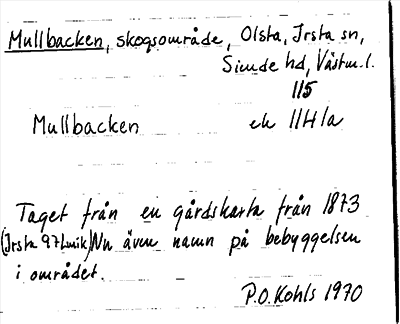 Mullbacken, skogsområde, Olsta, Irsta sn,
Siende hd, Västm. l.
115
Mullbacken ek 11H1a
Taget från en gårdskarta från 1873
(Irsta 97 Lmik) Nu även namn på bebyggelsen
i området.
P.O. Kohls 1970